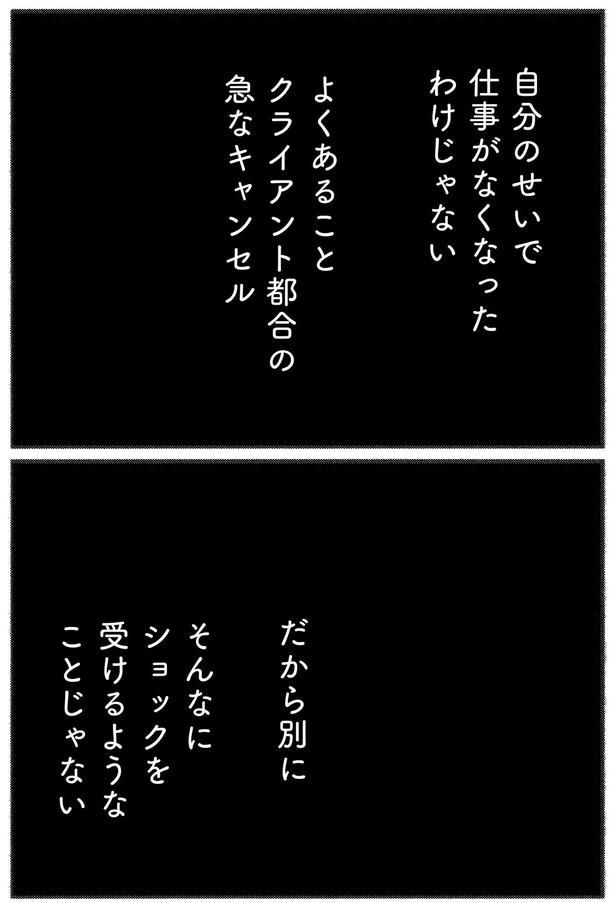 自分のせいで
仕事がなくなった
わけじゃない
よくあること
クライアント都合の
急なキャンセル
だから別に
そんなに
ショックを
受けるような
ことじゃない